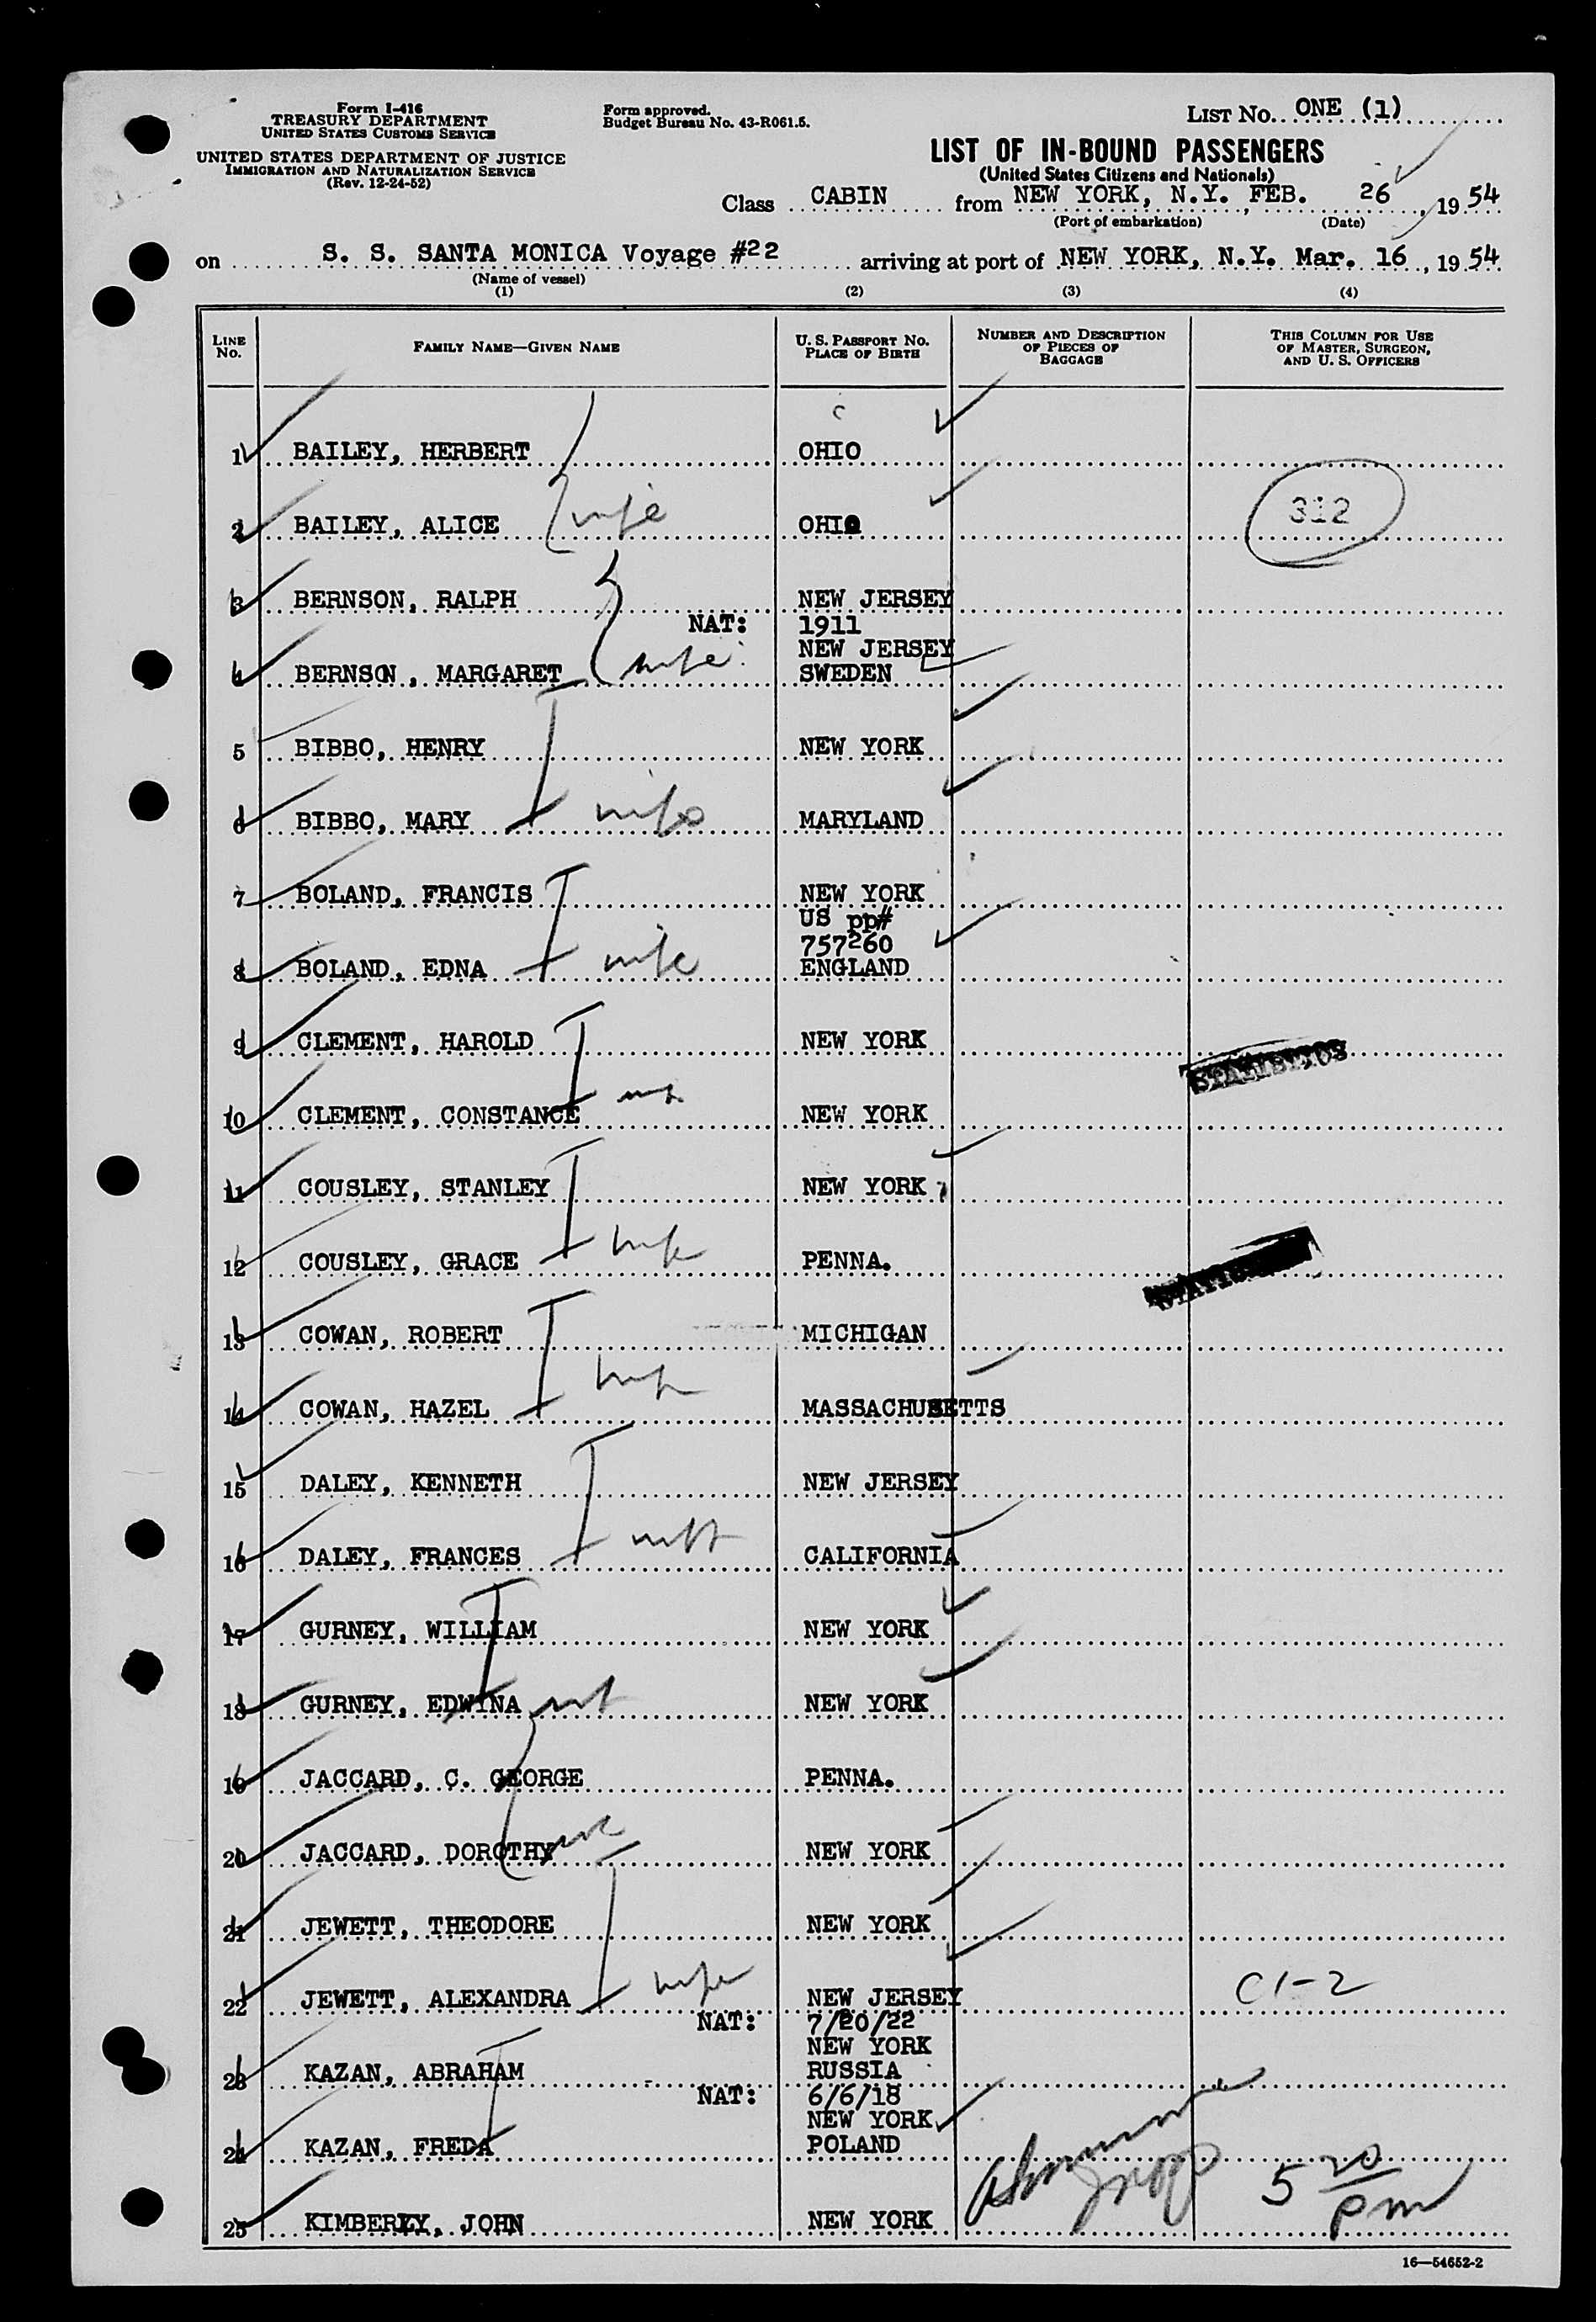 Form I-416
TREASURY DEPARTMENT
UNITED STATES CUSTOMS SERVICE
UNITED STATES DEPARTMENT OF JUSTICE
IMMIGRATION AND NATURALIZATION SERVICE
(Rev. 12-24-52)
Form approved.
Budget Bureau No. 43-R061.5.
LIST No. ONE (1)
LIST OF IN-BOUND PASSENGERS
(United States Citizens and Nationals)
Class CABIN from NEW YORK, N.Y. FEB. 26, 1954
(Port of embarkation) (Date)
on S. S. SANTA MONICA Voyage #22 arriving at port of NEW YORK, N.Y. Mar. 16, 1954
(Name of vessel)
(1) (2) (3) (4)
LINE NO. FAMILY NAME—GIVEN NAME U. S. PASSPORT NO. PLACE OF BIRTH NUMBER AND DESCRIPTION OF PIECES OF BAGGAGE THIS COLUMN FOR USE OF MASTER, SURGEON, AND U. S. OFFICERS
1 BAILEY, HERBERT OHIO
2 BAILEY, ALICE wife OHIO 312
3 BERNSON, RALPH NEW JERSEY
NAT: 1911
NEW JERSEY
4 BERNSON, MARGARET wife SWEDEN
5 BIBBO, HENRY NEW YORK
6 BIBBO, MARY wife MARYLAND
7 BOLAND, FRANCIS NEW YORK
US pp#
757260
8 BOLAND, EDNA wife ENGLAND
9 CLEMENT, HAROLD NEW YORK
10 CLEMENT, CONSTANCE NEW YORK
11 COUSLEY, STANLEY NEW YORK
12 COUSLEY, GRACE wife PENNA.
13 COWAN, ROBERT MICHIGAN
14 COWAN, HAZEL wife MASSACHUSETTS
15 DALEY, KENNETH NEW JERSEY
16 DALEY, FRANCES CALIFORNIA
17 GURNEY, WILLIAM NEW YORK
18 GURNEY, EDWINA NEW YORK
19 JACCARD, C. GEORGE PENNA.
20 JACCARD, DOROTHY NEW YORK
21 JEWETT, THEODORE NEW YORK
22 JEWETT, ALEXANDRA wife NEW JERSEY C1-2
NAT: 7/20/22
NEW YORK
23 KAZAN, ABRAHAM RUSSIA
NAT: 6/6/18
NEW YORK
24 KAZAN, FREDA POLAND
25 KIMBERLY, JOHN NEW YORK 5 20 pm
16—54652-2